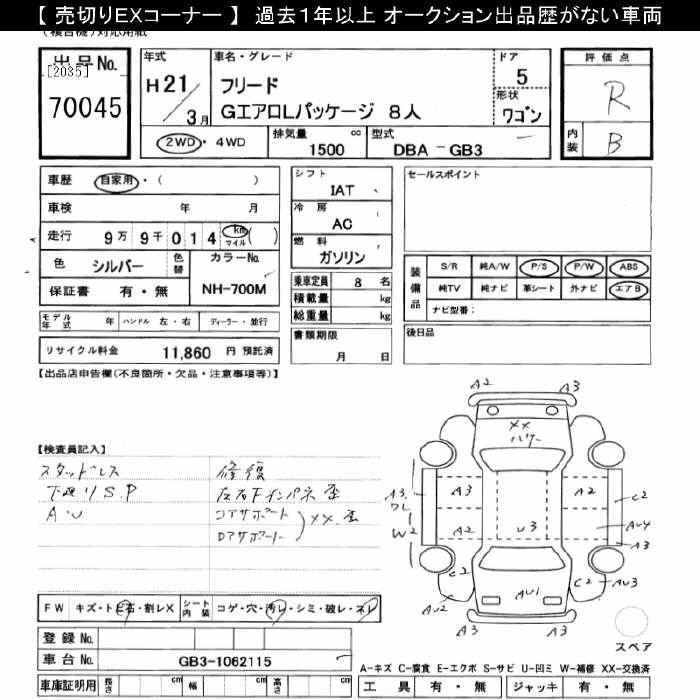 【 売切りEXコーナー 】 過去1年以上 オークション出品歴がない車両
出品No.
[2035]
70045
年式
H 21/3月
車名・グレード
フリード
GエアロLパッケージ 8人
ドア
5
形状
ワゴン
評価点
R
内装
B
2WD・4WD
排気量 cc
1500
型式
DBA － GB3
車歴 自家用・( )
車検 年 月
走行 9万 9千 0 1 4 km マイル ( )
色 シルバー 色替
カラーNo.
NH-700M
保証書 有・無
モデル年式 年 ハンドル 左・右 ディーラー・並行
リサイクル料金 11,860 円 預託済
シフト
IAT
冷房
AC
燃料
ガソリン
乗車定員 8 名
積載量 kg
総重量 kg
書類期限
月 日
セールスポイント
装備品
S/R 純A/W P/S P/W ABS
純TV 純ナビ 革シート 外ナビ エアB
ナビ型番:
後日品
【出品店申告欄(不良箇所・欠品・注意事項等)】
【検査員記入】
スタッドレス
下廻りS.P
AU
修復
左右Fインパネ 歪
コアサポート
ロアサポート
XX.歪
A2 A3
XX
ハゲー
A3. A3 A2 C2
WL
W2 A2 U3 AU4
A3
C2 C2 AU3
AU2 AU1
A3 A3
スペア
FW キズ・トビ石・割レX シート内装 コゲ・穴・汚レ・シミ・破レ・スレ
登録No.
車台No. GB3-1062115
車庫証明用 長さ cm 幅 cm 高さ cm
A-キズ C-腐食 E-エクボ S-サビ U-凹ミ W-補修 XX-交換済
工具 有・無 ジャッキ 有・無